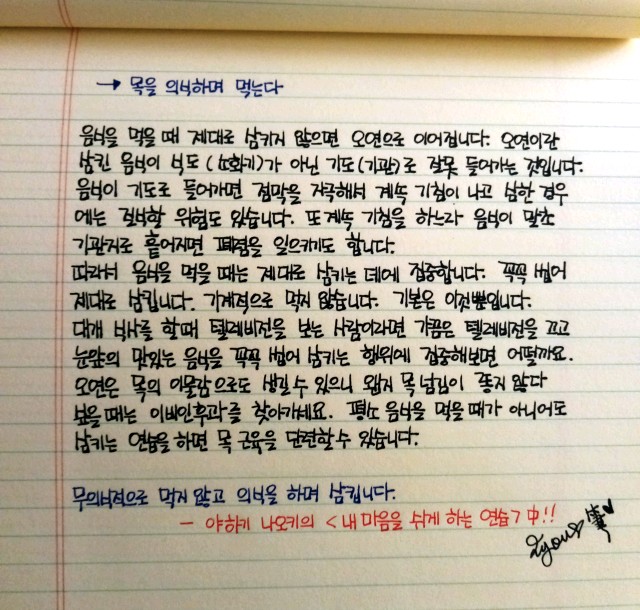 → 목을 의식하며 먹는다
음식을 먹을 때 제대로 삼키지 않으면 오연으로 이어집니다. 오연이란
삼킨 음식이 식도(소화기)가 아닌 기도(기관)로 잘못 들어가는 것입니다.
음식이 기도로 들어가면 점막을 자극해서 계속 기침이 나고 심한 경우
에는 질식할 위험도 있습니다. 또 계속 기침을 하느라 음식이 말초
기관지로 흩어지면 폐렴을 일으키기도 합니다.
따라서 음식을 먹을 때는 제대로 삼키는 데에 집중합니다. 꼭꼭 씹어
제대로 삼킵니다. 기계적으로 먹지 않습니다. 기본은 이것뿐입니다.
대개 식사를 할 때 텔레비전을 보는 사람이라면 가끔은 텔레비전을 끄고
눈앞의 맛있는 음식을 꼭꼭 씹어 삼키는 행위에 집중해보면 어떨까요.
오연은 목의 이물감으로도 생길 수 있으니 왠지 목 넘김이 좋지 않다
싶을 때는 이비인후과를 찾아가세요. 평소 음식을 먹을 때가 아니어도
삼키는 연습을 하면 목 근육을 단련할 수 있습니다.
무의식적으로 먹지 않고 의식을 하며 삼킵니다.
- 야하기 나오키의 <내 마음을 쉬게 하는 연습> 中!!